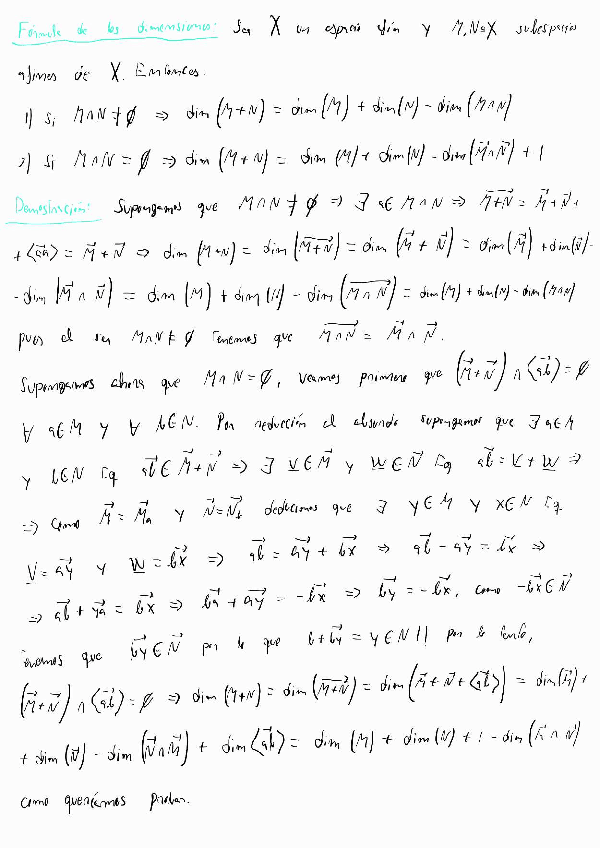 Fórmula de las dimensiones: Sea X un espacio afín y M, N ⊆ X subespacios
afines de X. Entonces:
1) Si M∩N ≠ ∅ ⇒ dim (M+N) = dim (M) + dim (N) - dim (M∩N)
2) Si M∩N = ∅ ⇒ dim (M+N) = dim (M) + dim (N) - dim (M⃗∩N⃗) + 1
Demostración: Supongamos que M∩N ≠ ∅ ⇒ ∃ a∈ M∩N ⇒ \overrightarrow{M+N} = M⃗ + N⃗ +
+ <\overrightarrow{aa}> = M⃗ + N⃗ ⇒ dim (M+N) = dim (\overrightarrow{M+N}) = dim (M⃗ + N⃗) = dim (M⃗) + dim (N⃗) -
- dim (M⃗ ∩ N⃗) = dim (M) + dim (N) - dim (\overrightarrow{M∩N}) = dim (M) + dim (N) - dim (M∩N)
pues al ser M∩N ≠ ∅ tenemos que \overrightarrow{M∩N} = M⃗ ∩ N⃗.
Supongamos ahora que M∩N = ∅, veamos primero que (M⃗+N⃗) ∩ <\overrightarrow{ab}> = ∅
∀ a∈M y ∀ b∈N. Por reducción al absurdo supongamos que ∃ a∈M
y b∈N tq \overrightarrow{ab} ∈ M⃗+N⃗ ⇒ ∃ v∈M⃗ y w∈N⃗ tq \overrightarrow{ab} = v + w ⇒
⇒ como M⃗ = M⃗ₐ y N⃗ = N⃗_b deducimos que ∃ y∈M y x∈N tq
v = \overrightarrow{ay} y w = \overrightarrow{bx} ⇒ \overrightarrow{ab} = \overrightarrow{ay} + \overrightarrow{bx} ⇒ \overrightarrow{ab} - \overrightarrow{ay} = \overrightarrow{bx} ⇒
⇒ \overrightarrow{ab} + \overrightarrow{ya} = \overrightarrow{bx} ⇒ \overrightarrow{ba} + \overrightarrow{ay} = -\overrightarrow{bx} ⇒ \overrightarrow{by} = -\overrightarrow{bx}, como -\overrightarrow{bx} ∈ N⃗
tenemos que \overrightarrow{by} ∈ N⃗ por lo que b + \overrightarrow{by} = y ∈ N !! por lo tanto,
(M⃗+N⃗) ∩ <\overrightarrow{ab}> = ∅ ⇒ dim (M+N) = dim (\overrightarrow{M+N}) = dim (M⃗ + N⃗ + <\overrightarrow{ab}>) = dim (M⃗) +
+ dim (N⃗) - dim (N⃗∩M⃗) + dim <\overrightarrow{ab}> = dim (M) + dim (N) + 1 - dim (M⃗ ∩ N⃗)
como queríamos probar.